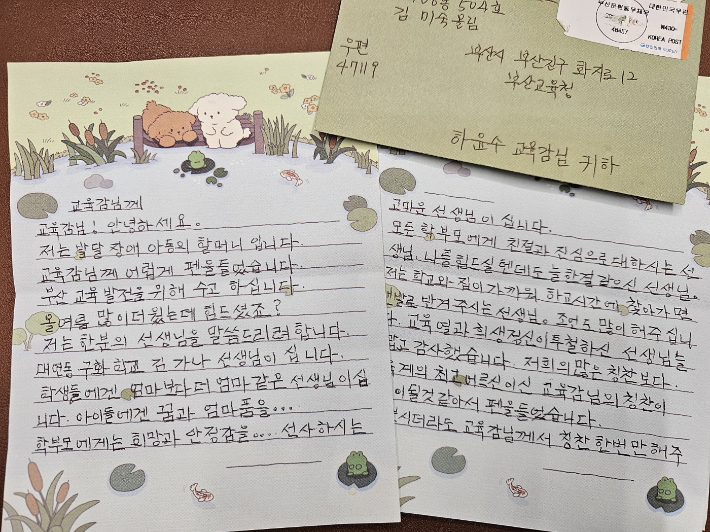 504호
김 미숙 올림
우편
47119
부산시 부산진구 화지로 12
부산교육청
하윤수 교육감님 귀하
대한민국
KOREA POST
48457
교육감님께
교육감님! 안녕하세요.
저는 발달 장애 아동의 할머니 입니다.
교육감님께 어렵게 펜을들었습니다.
부산 교육 발전을 위해 수고 하십니다.
올 여름 많이더웠는데 힘드셨죠?
저는 한분의 선생님을 말씀드리려 합니다.
대연동 구화 학교 김 가나 선생님이 십니다.
학생들에겐 엄마보다 더 엄마 같은 선생님이십
니다. 아이들에겐 꿈과 엄마품을...
학부모에게는 희망과 안정감을... 선사하시는
고마운 선생님이 십니다.
모든 학부모에게 친절과 진심으로 대하시는 선
생님. 나들힘드실텐데도 늘한결 같으신 선생님.
저는 학교와 집이가까워 하교시간에 찾아가 뵐
반겨주시는 선생님. 조언도 많이해주 십니
다. 교육 열과 희생정신이투철하신 선생님을
감사했습니다. 저희의많은 칭찬보다.
계의 최고어르신이신 교육감님의 칭찬이
이될것 같아서 펜을들었습니다.
시더라도 교육감님께서 칭찬 한번만 해주